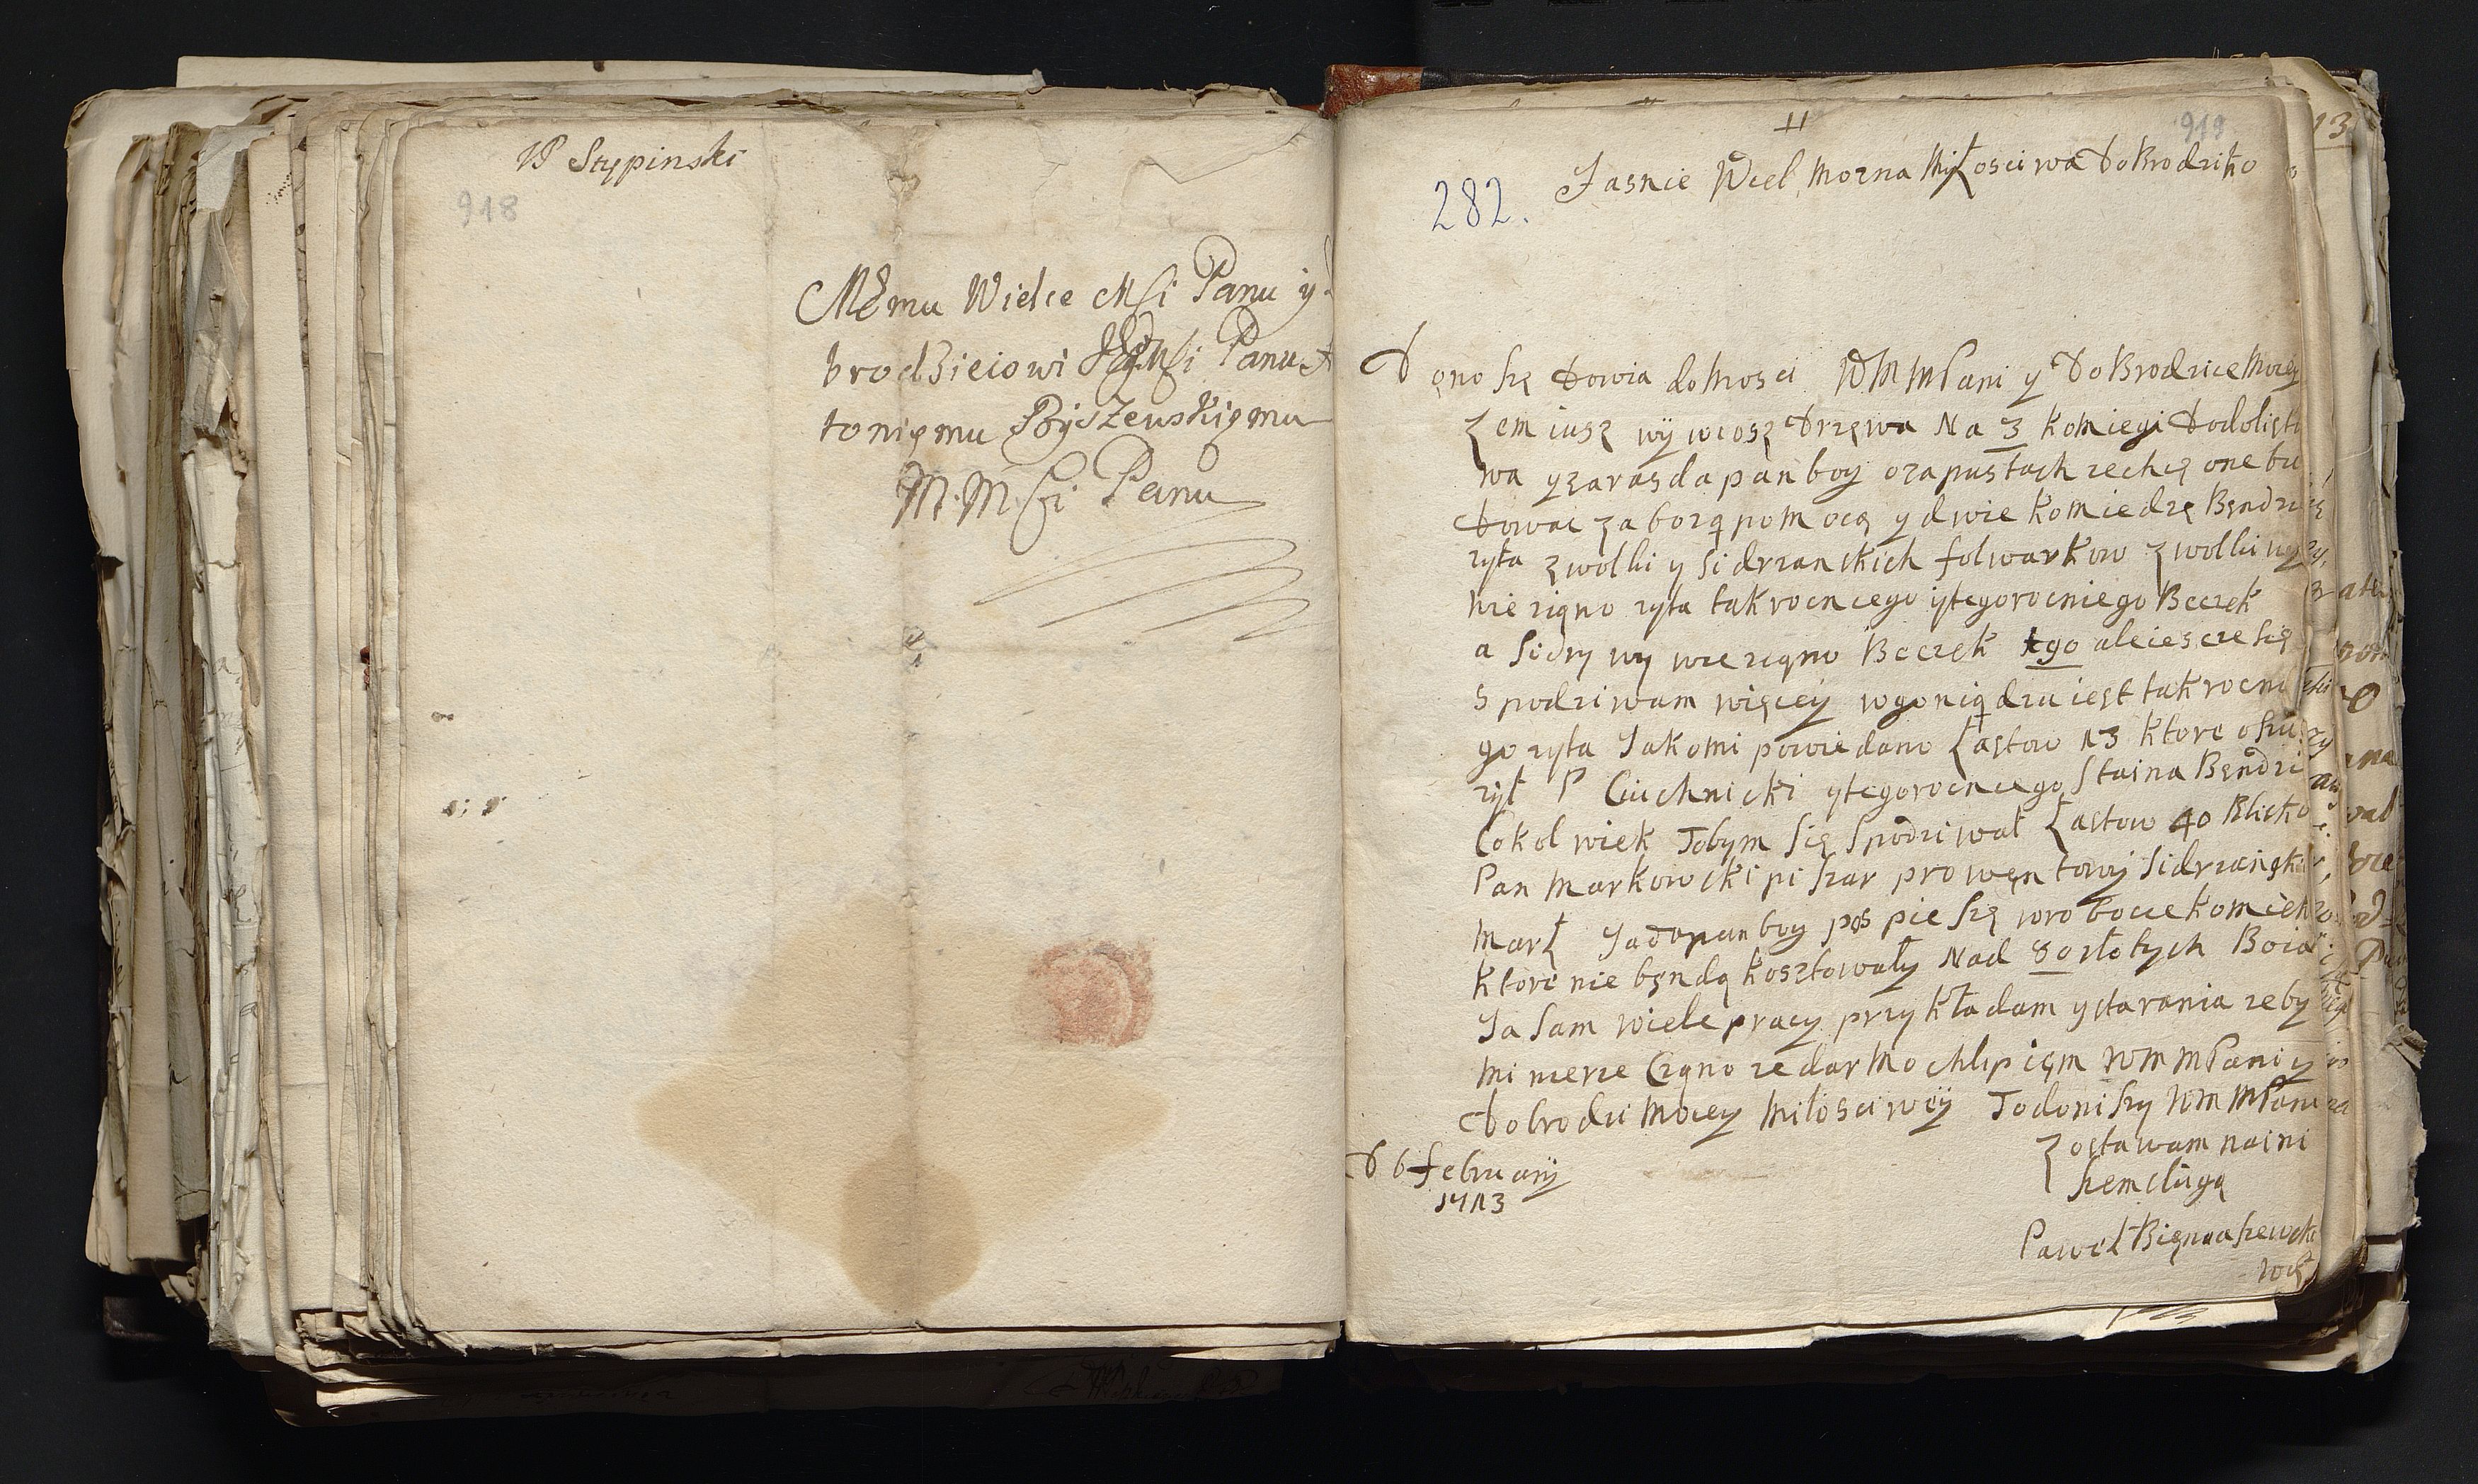 W P Stypinski
918
Memu Wielce Msci Panu y
brodzieiowi Panu
toniemu Byszewskiemu
M. M. Sci Panu
919
13
282.
Jasnie Wiel Mozna Miłosciwa dobrodziko
Dono szę dowia domosci WMMPani y Dobrodzice Mocey
zem iusz wÿ wiosz drzewa Na 3 komiegi do dolistu
wa y zaras da pan boy ozapustach zechcę one bu
dowac za bozą pomocą y dwie komiedzę Bendzie
zyta z wolbi y Sidrzanskich folwarkow z wolbi wy
wieziono zyta takrocnego ÿtegorocniego Beczek
a Sidry wy wieziono Beczek tgo ale iescze się
spodziwam więcey wgoniądzu iest takrocni
go zyta Jakomi powiedano Łastow 13 ktore oszu
zył P Ciuchnicki ytegorocnego Staina Bendzi
Cokolwiek Tobym się Spodziwał Łastow 40 Blisko
Pan Markowski piszar prowentowy Sidrzanski
Marł Ja da pan boy pospieszę wrobocie komieg
ktore nie bendą kosztowały Nad 80 złotych Boia
Ja sam wiele pracy przykładam y starania zeby
mi nierze Czono ze darmo chlip iem WMMPani y
dobrodzi Mocey Miłosciwÿ To doniszy WMMPani
zostawam naini
szem sługą
D 6 february
1713
Paweł Bienuaszewski